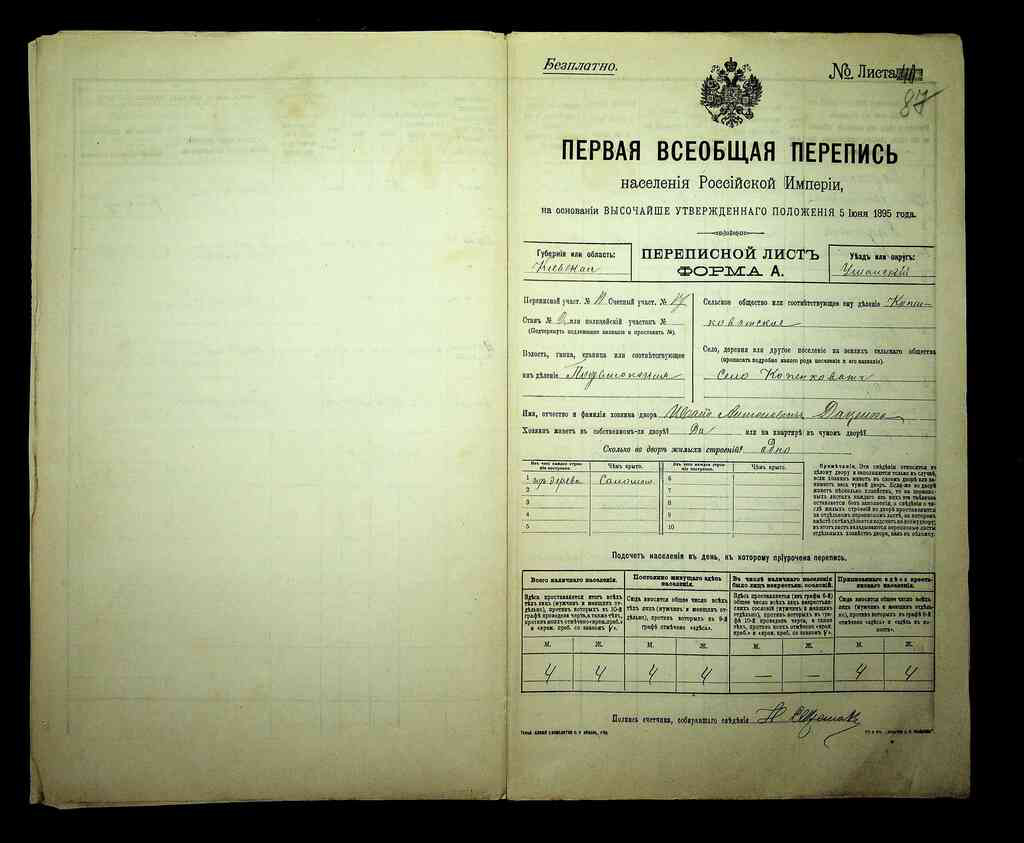 Безплатно.
№ Листа
87
ПЕРВАЯ ВСЕОБЩАЯ ПЕРЕПИСЬ
населенія Россійской Имперіи,
на основаніи ВЫСОЧАЙШЕ УТВЕРЖДЕННАГО ПОЛОЖЕНІЯ 5 Іюня 1895 года.
Губернія или область:
Кіевская
ПЕРЕПИСНОЙ ЛИСТЪ
ФОРМА А.
Уѣздъ или округъ:
Уманскій
Переписной участ. № Счетный участ. №
Станъ № 2 или полицейскій участокъ №
(Подчеркнуть подлежащее названіе и проставить №).
Волость, гмина, станица или соотвѣтствующее
имъ дѣленіе
Сельское общество или соотвѣтствующее ему дѣленіе Копен-
коватское
Село, деревня или другое поселеніе на земляхъ сельскаго общества
(прописать подробно какого рода поселеніе и его названіе).
Село Копенковатъ
Имя, отчество и фамилія хозяина двора
Хозяинъ живетъ въ собственномъ-ли дворѣ? Да или на квартирѣ въ чужомъ дворѣ?
Сколько во дворѣ жилыхъ строеній? Одно
Изъ чего каждое строе-
ніе построено.
Чѣмъ крыто.
Изъ чего каждое строе-
ніе построено.
Чѣмъ крыто.
1 изъ дерева Соломою 6
2 7
3 8
4 9
5 10
Примѣчаніе. Эти свѣдѣнія относятся къ
цѣлому двору и заполняются только въ случаѣ,
если хозяинъ живетъ въ своемъ дворѣ или за-
нимаетъ весь чужой дворъ. Если-же во дворѣ
живетъ нѣсколько хозяйствъ, то на перепис-
ныхъ листахъ каждаго изъ нихъ эта табличка
оставляется безъ заполненія, а свѣдѣнія о чи-
слѣ жилыхъ строеній во дворѣ проставляются
Подсчетъ населенія въ день, къ которому пріурочена перепись.
Всего наличнаго населенія.
Постоянно живущаго здѣсь
населенія.
Въ числѣ наличнаго населенія
было лицъ некрестьян. сословій.
Приписаннаго здѣсь крестья-
нскаго населенія.
Здѣсь проставляется итогъ всѣхъ
тѣхъ лицъ (мужчинъ и женщинъ от-
дѣльно), противъ которыхъ въ 10-й
графѣ проведена черта, а также тѣхъ,
противъ коихъ отмѣчено «врем. преб.»
Сюда вносится общее число всѣхъ
тѣхъ лицъ (мужчинъ и женщинъ от-
дѣльно), противъ которыхъ въ 9-й
графѣ отмѣчено «здѣсь».
Здѣсь проставляется (изъ графы 6-й)
общее число всѣхъ некрестьян-
скихъ сословій (мужчинъ и женщинъ
отдѣльно), противъ которыхъ въ гра-
фѣ 10-й проведена черта, а также
тѣхъ, противъ коихъ отмѣчено «врем.
преб.»
Сюда вносится общее число всѣхъ
лицъ (мужчинъ и женщинъ отдѣль-
но), противъ которыхъ въ графѣ 8-й
отмѣчено «здѣсь» и «здѣсь въ
М. Ж. М. Ж. М. Ж. М. Ж.
4 4 4 4 — — 4 4
Подпись счетчика, собиравшаго свѣдѣнія